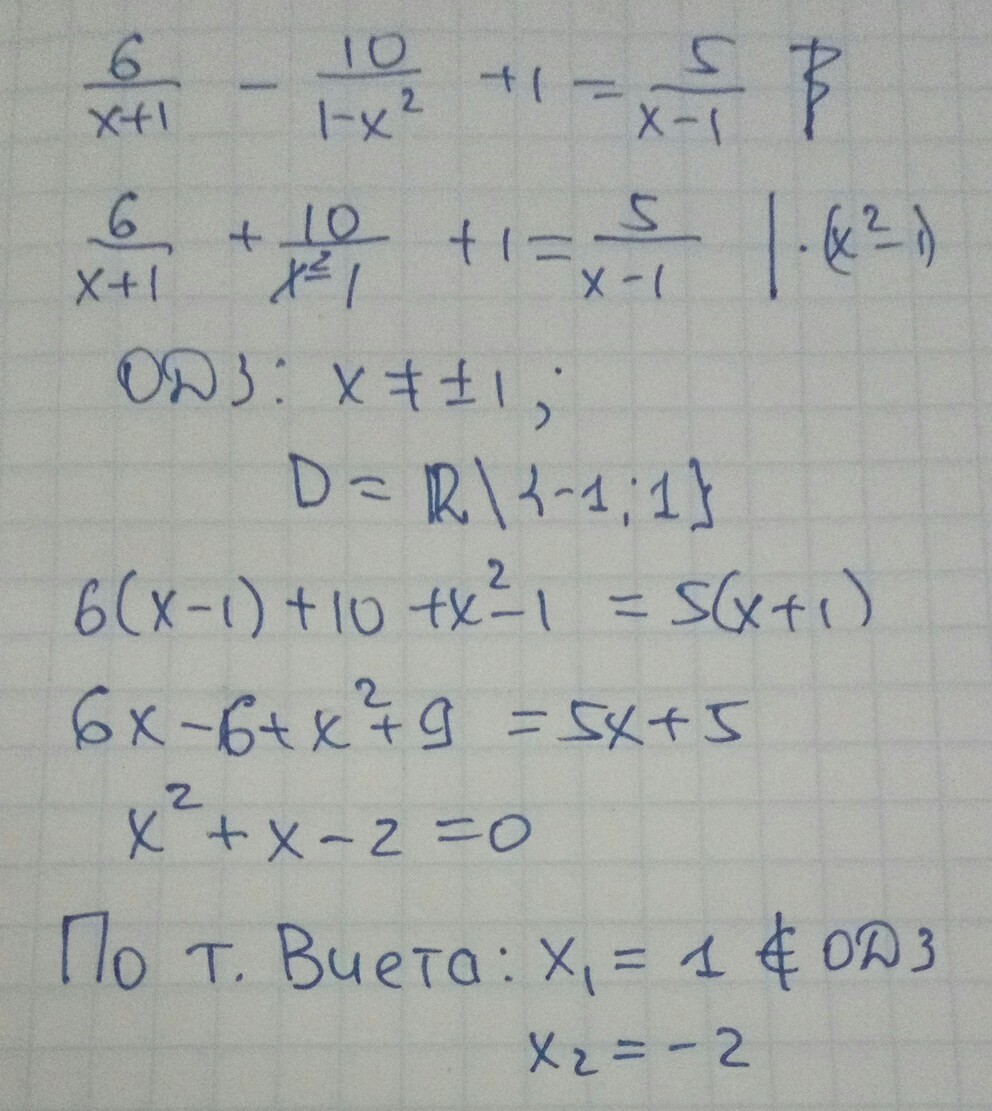 6/(x+1) - 10/(1-x²) + 1 = 5/(x-1)
6/(x+1) + 10/(x²-1) + 1 = 5/(x-1) | · (x²-1)
ОДЗ: x ≠ ±1;
D = ℝ \ {-1; 1}
6(x-1) + 10 + x² - 1 = 5(x+1)
6x - 6 + x² + 9 = 5x + 5
x² + x - 2 = 0
По т. Виета: x₁ = 1 ∉ ОДЗ
x₂ = -2